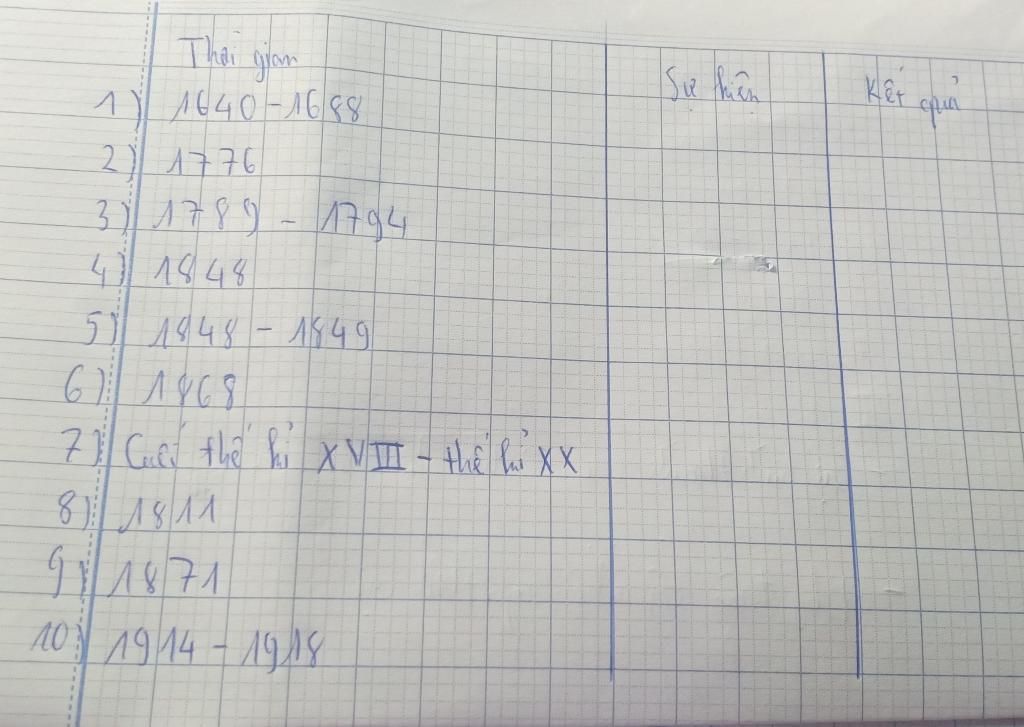 Thời gian Sự kiện Kết quả
1) 1640 - 1688
2) 1776
3) 1789 - 1794
4) 1848
5) 1848 - 1849
6) 1868
7) Cuối thế kỉ XVIII - thế kỉ XX
8) 1811
9) 1871
10) 1914 - 1918